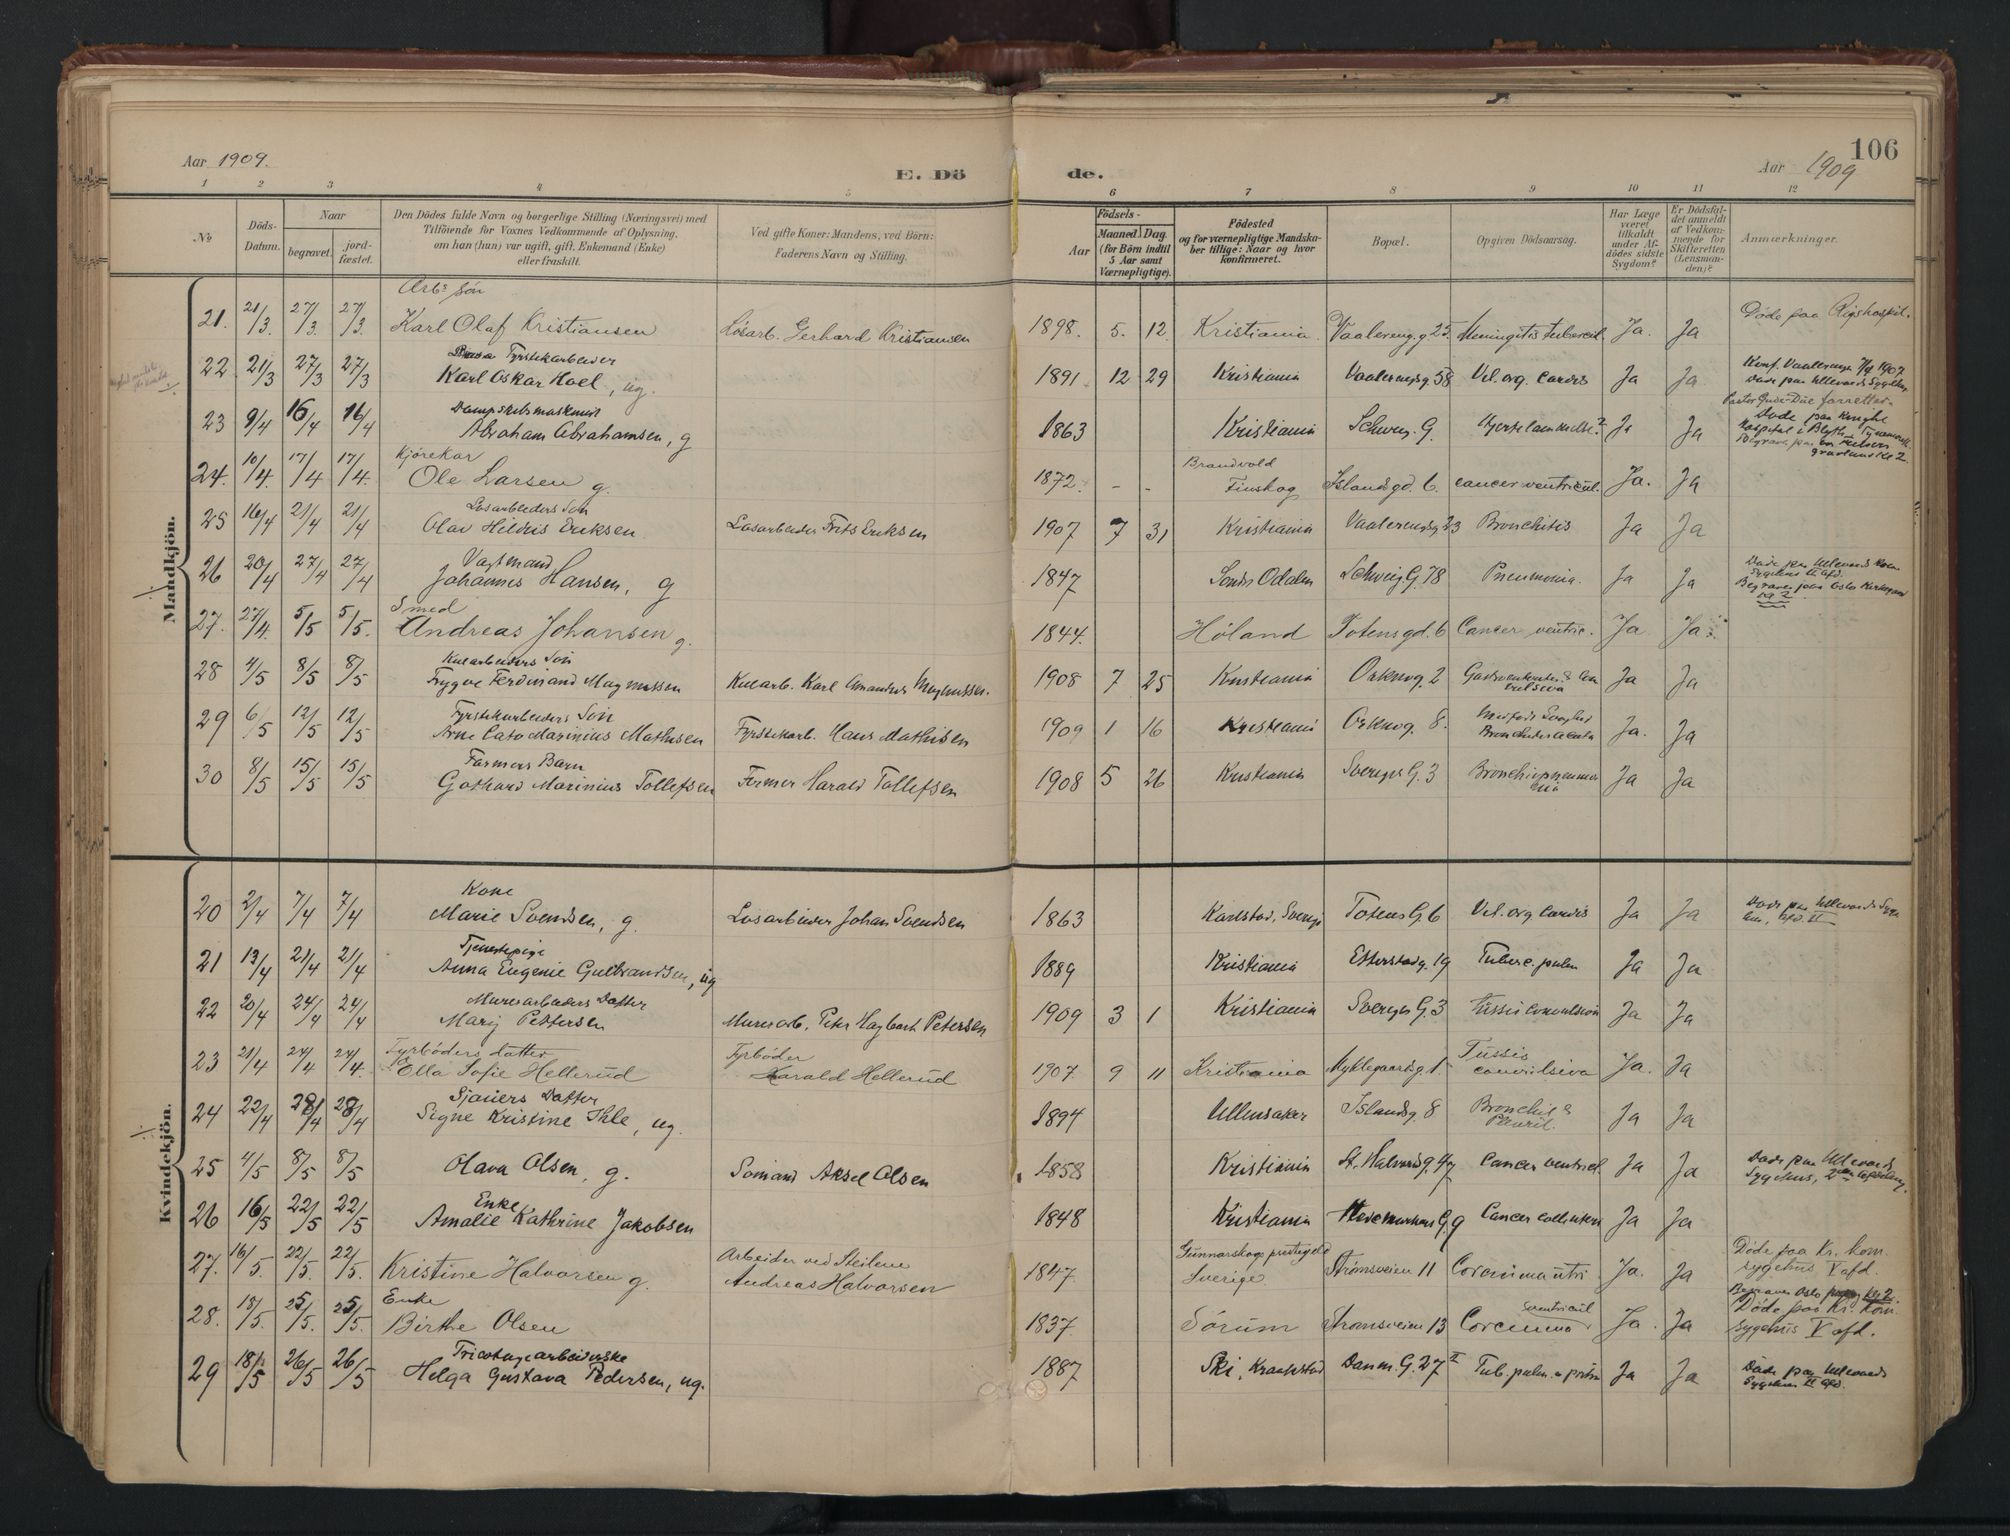 Aar 1909.
E. Dö
de.
106
Aar 1909
1 2 3 4 5 6 7 8 9 10 11 12
№
Döds-Datum.
Naar
begravet.
jord-fæstet.
Den Dödes fulde Navn og borgerlige Stilling (Næringsvei) med
Tilföiende for Voxnes Vedkommende af Oplysning,
om han (hun) var ugift, gift, Enkemand (Enke)
eller fraskilt.
Ved gifte Koner: Mandens, ved Börn:
Faderens Navn og Stilling.
Födsels-
Aar
Maaned Dag.
(for Börn indtil
5 Aar samt
Værnepligtige).
Födested
og for værnepligtige Mandska-
ber tillige: Naar og hvor
konfirmeret.
Bopæl.
Opgiven Dödsaarsag.
Har Læge
været
tilkaldt
under Af-
dödes sidste
Sygdom?
Er Dödsfal-
det anmeldt
af Vedkom-
mende for
Skifteretten
(Lensman-
den)?
Anmærkninger.
Mandkjön.
Arb. søn
21. 21/3 27/3 27/3 Karl Olaf Kristiansen Løsarb. Gerhard Kristiansen 1898. 5. 12. Kristiania Vaalereng.g 25. Meningitis tubercul. Ja. Ja Døde paa Rigshospit.
Fyrstikarbeider
22 21/3 27/3 27/3 Karl Oskar Hoel, ug. 1891 12 29 Kristiania Vaalerengsg 58 Vit. org. cordis Ja Ja Konf. Vaalerenge 7/4 1907
Døde paa Ullevaals Sygehus
Dampskibsmaskinist
23 9/4 16/4 16/4 Abraham Abrahamsen, g 1863 Kristiania Schweig. G. Hjertelammelse? Ja Ja
Døde paa Knight
Hospital i Blyth
Kjørekar
24. 10/4. 17/4 17/4. Ole Larsen g. 1872. - - Brandvold
Finskog Islandsgd. 6. cancer ventricul. Ja. Ja
Løsarbeiders Søn
25 16/4 21/4 21/4 Olav Hildris Eriksen Løsarbeider Frits Eriksen 1907 7 31 Kristiania Vaalerendsg 23 Bronchitis Ja Ja
Vagtmand
26 20/4 27/4 27/4 Johannes Hansen, g 1847 Søndr Odalen Schweig. G. 78 Pneumonia. Ja Ja Døde paa Ullevaals Kom.
Sygehus II afd.
Begraves paa Oslo Kirkegaard
Kl 2
Smed
27. 27/4. 5/5 5/5. Andreas Johansen g. 1844. Høland Totensgd. 6 Cancer ventric. Ja Ja
Kularbeiders Søn
28 4/5 8/5 8/5 Trygve Ferdinand Magnussen Kularb. Karl Amandus Magnussen. 1908 7 25 Kristiania Orknøg. 2 Ja Ja
Fyrstikarbeiders Søn
29 6/5 12/5 12/5 Arne Cato Marinius Mathisen Fyrstikarb. Hans Mathisen 1909 1 16 Kristiania Orknøg. 8. Medfødt Svaghed
Bronchitis acuta Ja. Ja
Formers Barn
30 8/5 15/5 15/5 Gothard Marinius Tollefsen Former Harald Tollefsen 1908 5 26 Kristiania Sveriges G. 3 Bronchiopneumo
nia Ja Ja
Kvindekjön.
Kone
20 2/4 7/4 7/4 Marie Svendsen, g. Løsarbeider Johan Svendsen 1863 Karlstad, Sverige Totens G. 6 Vit. org. Cordis Ja Ja Døde paa Ullevaals Syge
hus, Afd. II
Tjenestepige
21 13/4 21/4 21/4 Anna Eugenie Gulbrandsen, ug 1889 Kristiania Etterstadg. 19 Tuberc. pulm Ja Ja
Murerarbeiders Datter
22 20/4 24/4 24/4 Mary Pettersen Murerarb. Peter Hagbart Petersen 1909 3 1 Kristiania Sveriges G. 3 tussis convulsiva Ja Ja
Fyrbøders datter
23 21/4 24/4 24/4. Ella Sofie Hellerud Fyrbøder
Harald Hellerud 1907. 9 11 Kristiania Myklegaardsg. 1. Tussis
convulsiva Ja. Ja
Sjauers Datter
24 22/4 28/4 28/4 Signe Kristine Ihle, ug. 1894 Ullensaker Islandsg. 8 Bronchit &
Pleurit. Ja Ja
25 4/5 8/5 8/5 Olava Olsen, g. Sømand Aksel Olsen 1858 Kristiania St. Halvardsg. 47 Cancer ventricl Ja Ja Døde paa Ullevaals
Sygehus, 2den Afdeling.
Enke
26 16/5 22/5 22/5 Amalie Kathrine Jakobsen 1848 Kristiania Hedemarkens G. 9 Cancer Ja Ja
27. 16/5. 22/5. 22/5. Kristine Halvorsen g. Arbeider ved Steilene
Andreas Halvorsen 1847. Gunnarskogs prestegeld
Sverige Strømsveien 11 Ja. Ja Døde paa Kr. kom.
sygehus V afd.
Enke
28. 18/5. 25/5. 25/5. Birthe Olsen 1837. Sørum Strømsveien 13 ventricul Ja. Ja Døde paa Kr. kom.
sygehus V afd.
Tricotagearbeiderske
29 18/5 26/5 26/5 Helga Gustava Pedersen, ug. 1887 Ski, Kraakstad Danm. G. 27 II Tub. pulm. Ja Ja Døde paa Ullevaals
Sygehus II afd.